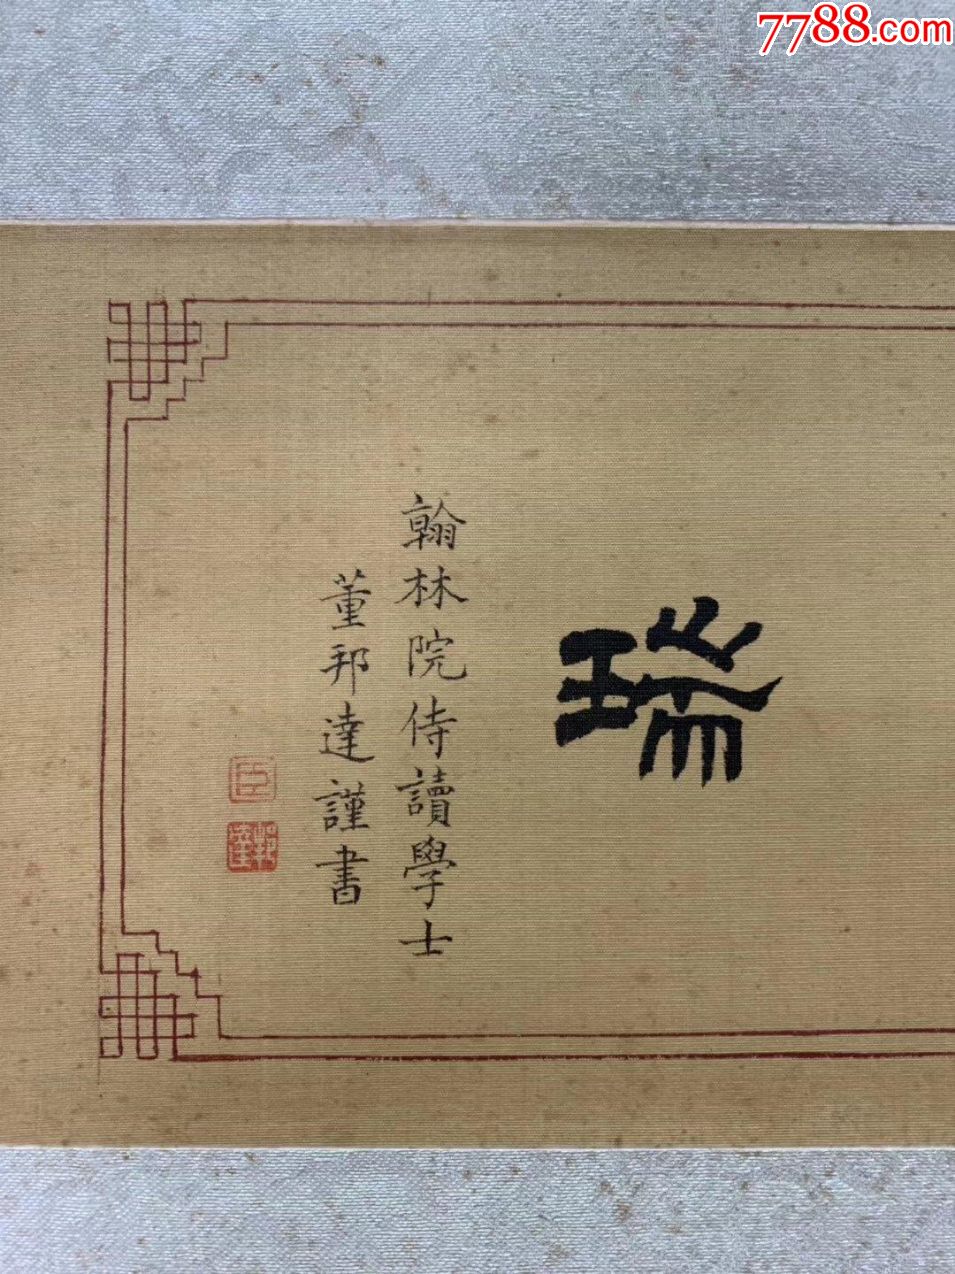 7788.com
瑞
翰林院侍讀學士
董邦達謹書
臣
邦達